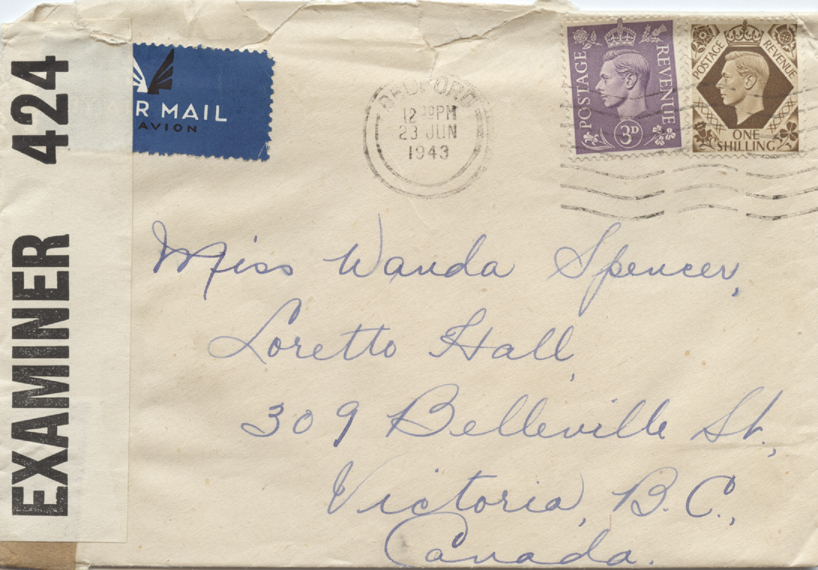 EXAMINER 424
AIR MAIL
AVION
BEDFORD
12 30PM
23 JUN
1943
POSTAGE REVENUE
3D
POSTAGE REVENUE
ONE
SHILLING
Miss Wanda Spencer,
Loretto Hall,
309 Belleville St.,
Victoria, B.C.,
Canada.